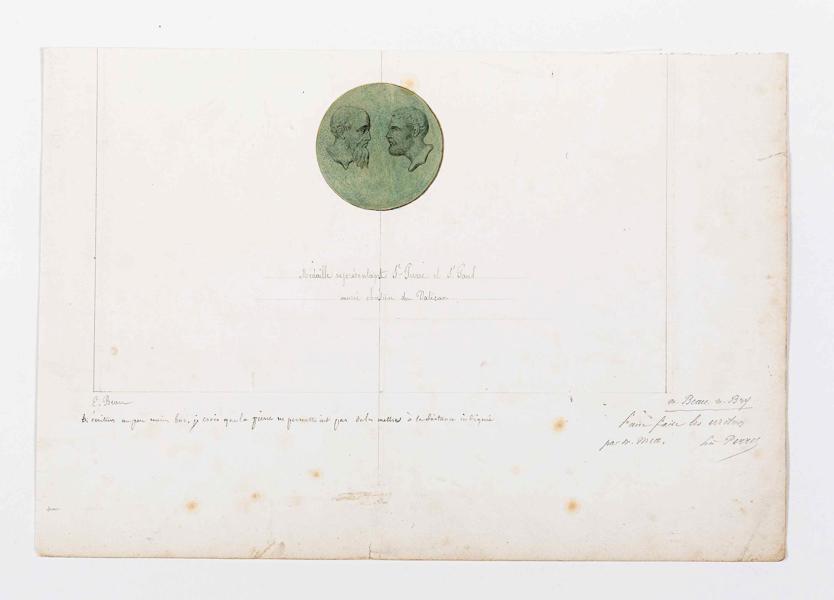 Médaille représentant St Pierre et St Paul
musée chrétien du Vatican
E. Beau
écriture un peu moins bas, je crois que la pierre ne permettrait pas de les mettre à la distance indiquée
m. Beau. m. Bry
faire faire les
par m.
Perret